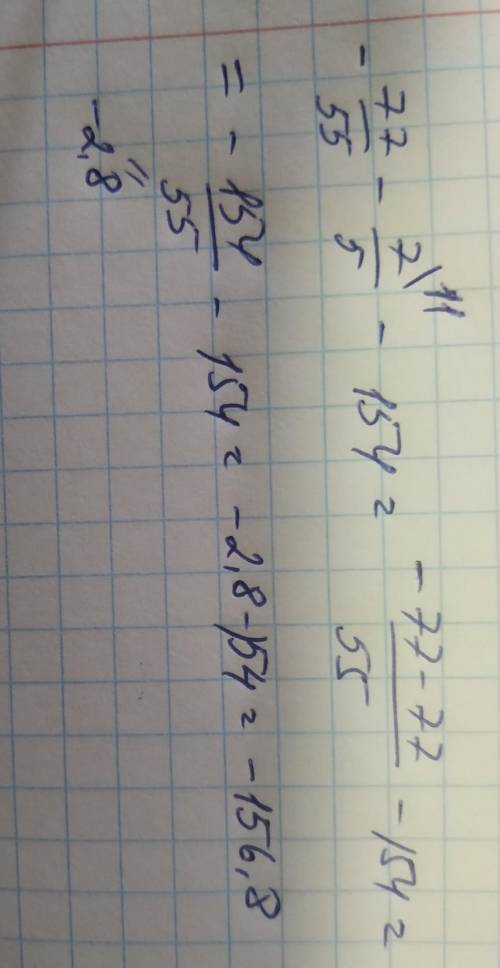 - 77/55 - 7\11/5 - 154 = - 77-77/55 - 154 =
= - 154/55 - 154 = -2,8-154 = -156,8
"
-2,8